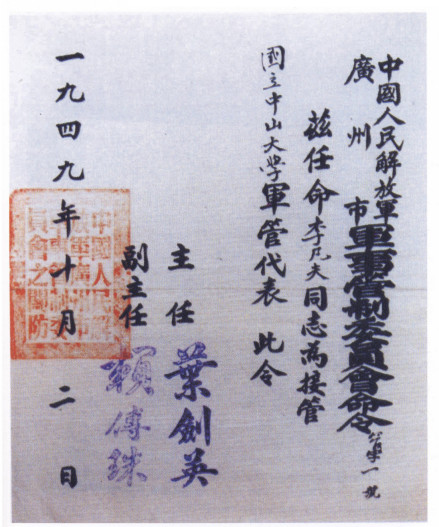 中國人民解放軍
廣州市
軍事管制委員會命令
第一號
茲任命李凡夫同志為接管
國立中山大學軍管代表 此令
主任 葉劍英
副主任 賴傳珠
一九四九年十月二日
中國人民解
放軍廣州市
軍事管制委
員會之關防